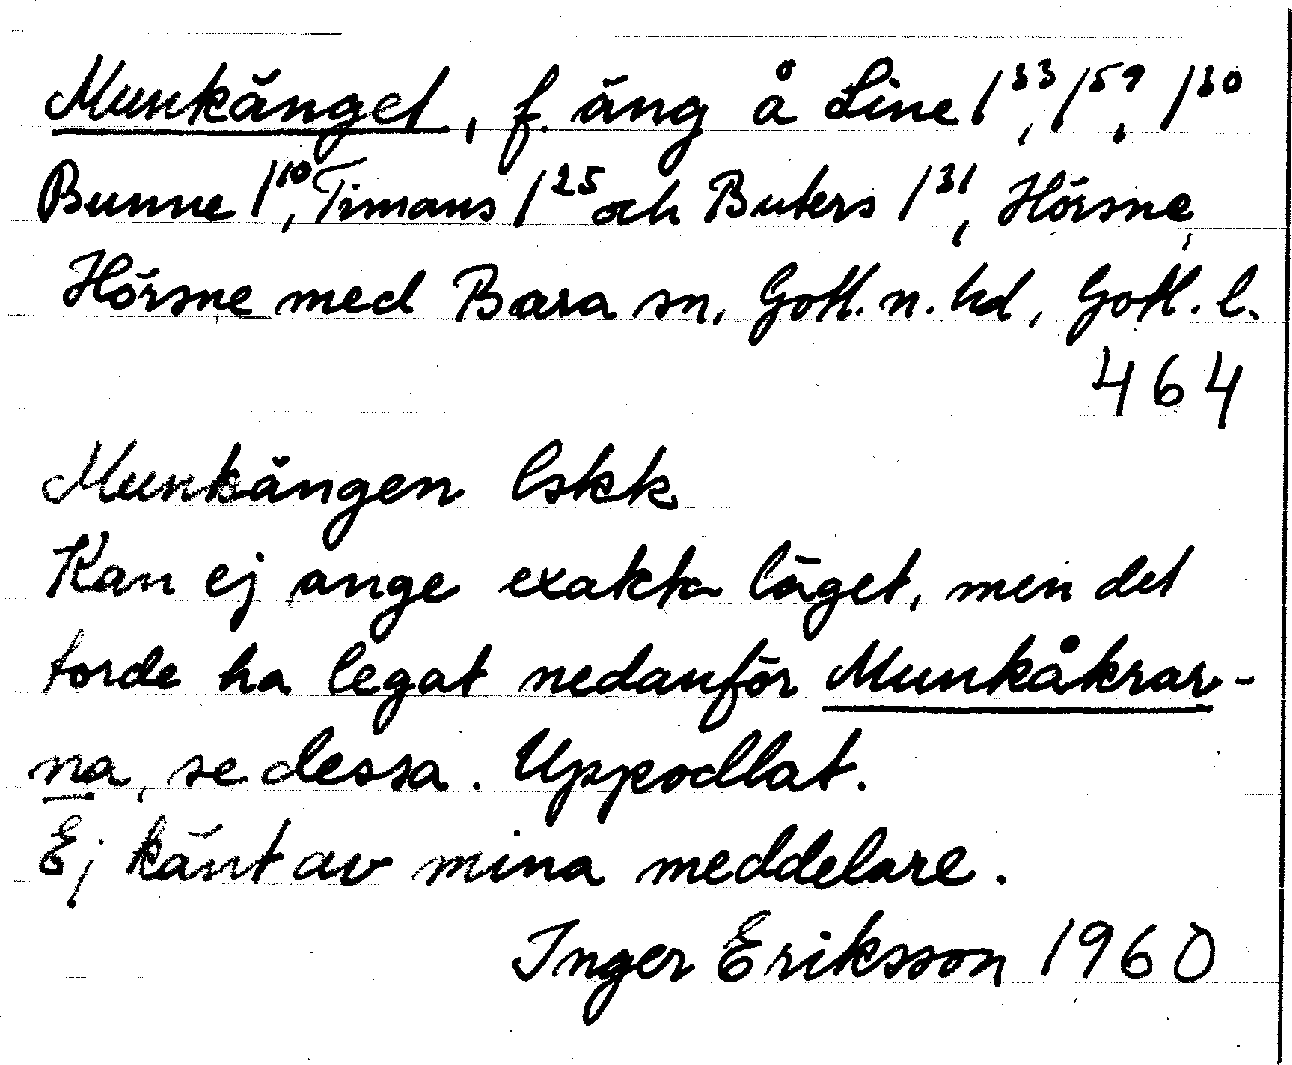 Munkänget, f. äng å Line 1³³, 1⁵⁹, 1³⁰
Bunne 1¹⁰, Timans 1²⁵ och Buters 1³¹, Hörsne,
Hörsne med Bara sn, Gotl. n. hd, Gotl. l.
464
Munkängen lskk
Kan ej ange exakta läget, men det
torde ha legat nedanför Munkåkrar-
na, se dessa. Uppodlat.
Ej känt av mina meddelare.
Inger Eriksson 1960